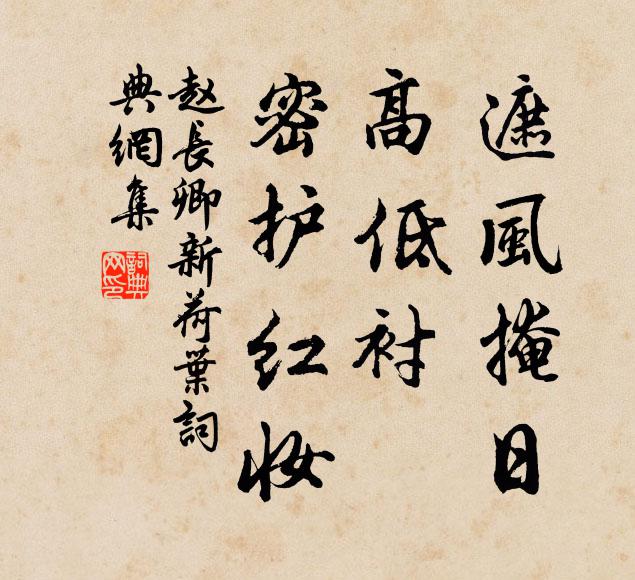 遮風掩日
高低衬
密护红妆
赵長卿新荷葉詞
典網集
詞典
网印